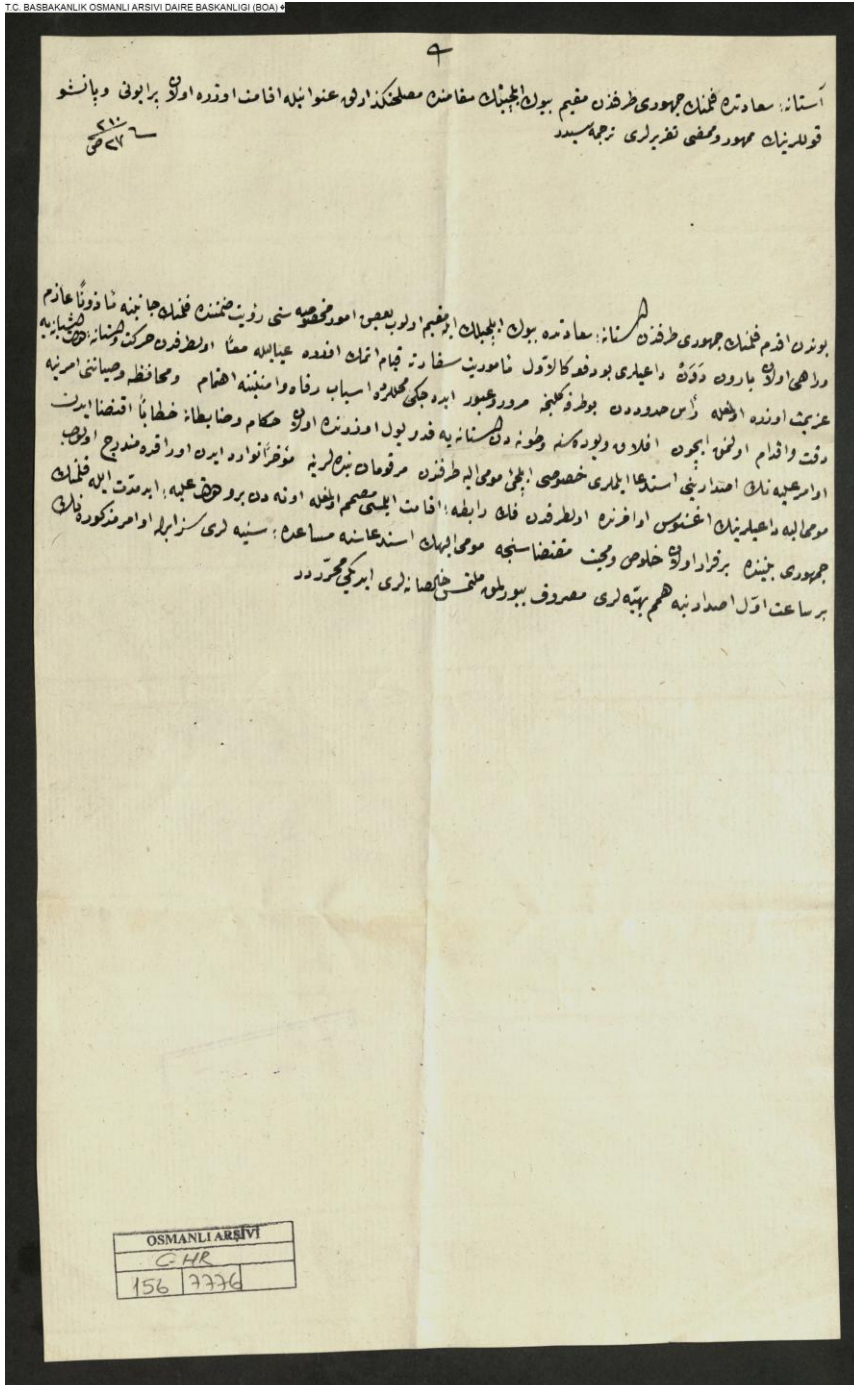 T.C. BASBAKANLIK OSMANLI ARSIVI DAIRE BASKANLIGI (BOA)
آستانهٔ سعادتده فلمنك جمهوری طرفندن مقیم بیوك ایلچیلك مقامنده مصلحتكذارلق عنوانیله اقامت اوزره اولان
قوللرینك ممهور و ممضی تقریرلری ترجمه سیدر
بوندن اقدم فلمنك جمهوری طرفندن آستانهٔ سعادتده بیوك ایلچیلك ایله مقیم اولوب بعض امور مخصوصه سنی رؤیت ضمننده فلمنك جانبنه مأذونًا عازم
و راهی اولان بارون داعیلری بو دفعه كالاول مأموریت سفارته قیام اتمك اوزره عیالیله معًا اولطرفدن حركت و آستانهٔ
عزیمت اوزره اولمغله رأس حدوددن بو طرفه كلنجه مرور و عبور ایده جكی محللرده اسباب رفاه و امنیتنه اهتمام و محافظه و صیانتی امرینه
دقت و اقدام اولنمق ایچون افلاق ویوده سنه و طونه دن آستانه یه قدر یول اوزرنده اولان حكام و ضابطانه خطابًا اقتضا ایدن
اوامر علیه نك اصدارینی استدعا ایلملری خصوصی ایلچئ مومی الیه طرفندن مرقومان بنده لرینه مؤخرًا توارد ایدن اوراقده مندرج اولوب
مومی الیه داعیلرینك اغستوس اواخرنده اولطرفدن فك رابطهٔ اقامت ایلمسی مصمم اولمغله اوته دن برو دولت علیهٔ ابد مدت ایله فلمنك
جمهوری بیننده برقرار اولان خلوص و محبت مقتضاسنجه مومی الیهك استدعاسنه مساعدهٔ سنیه لری سزاوار اوامر مذكوره نك
بر ساعت اول اصدارینه همم بهیه لری مصروف بیورلمق ملتمس خالصانه لری ایدیكی محرردر
OSMANLI ARŞİVİ
C-HR
156 7776